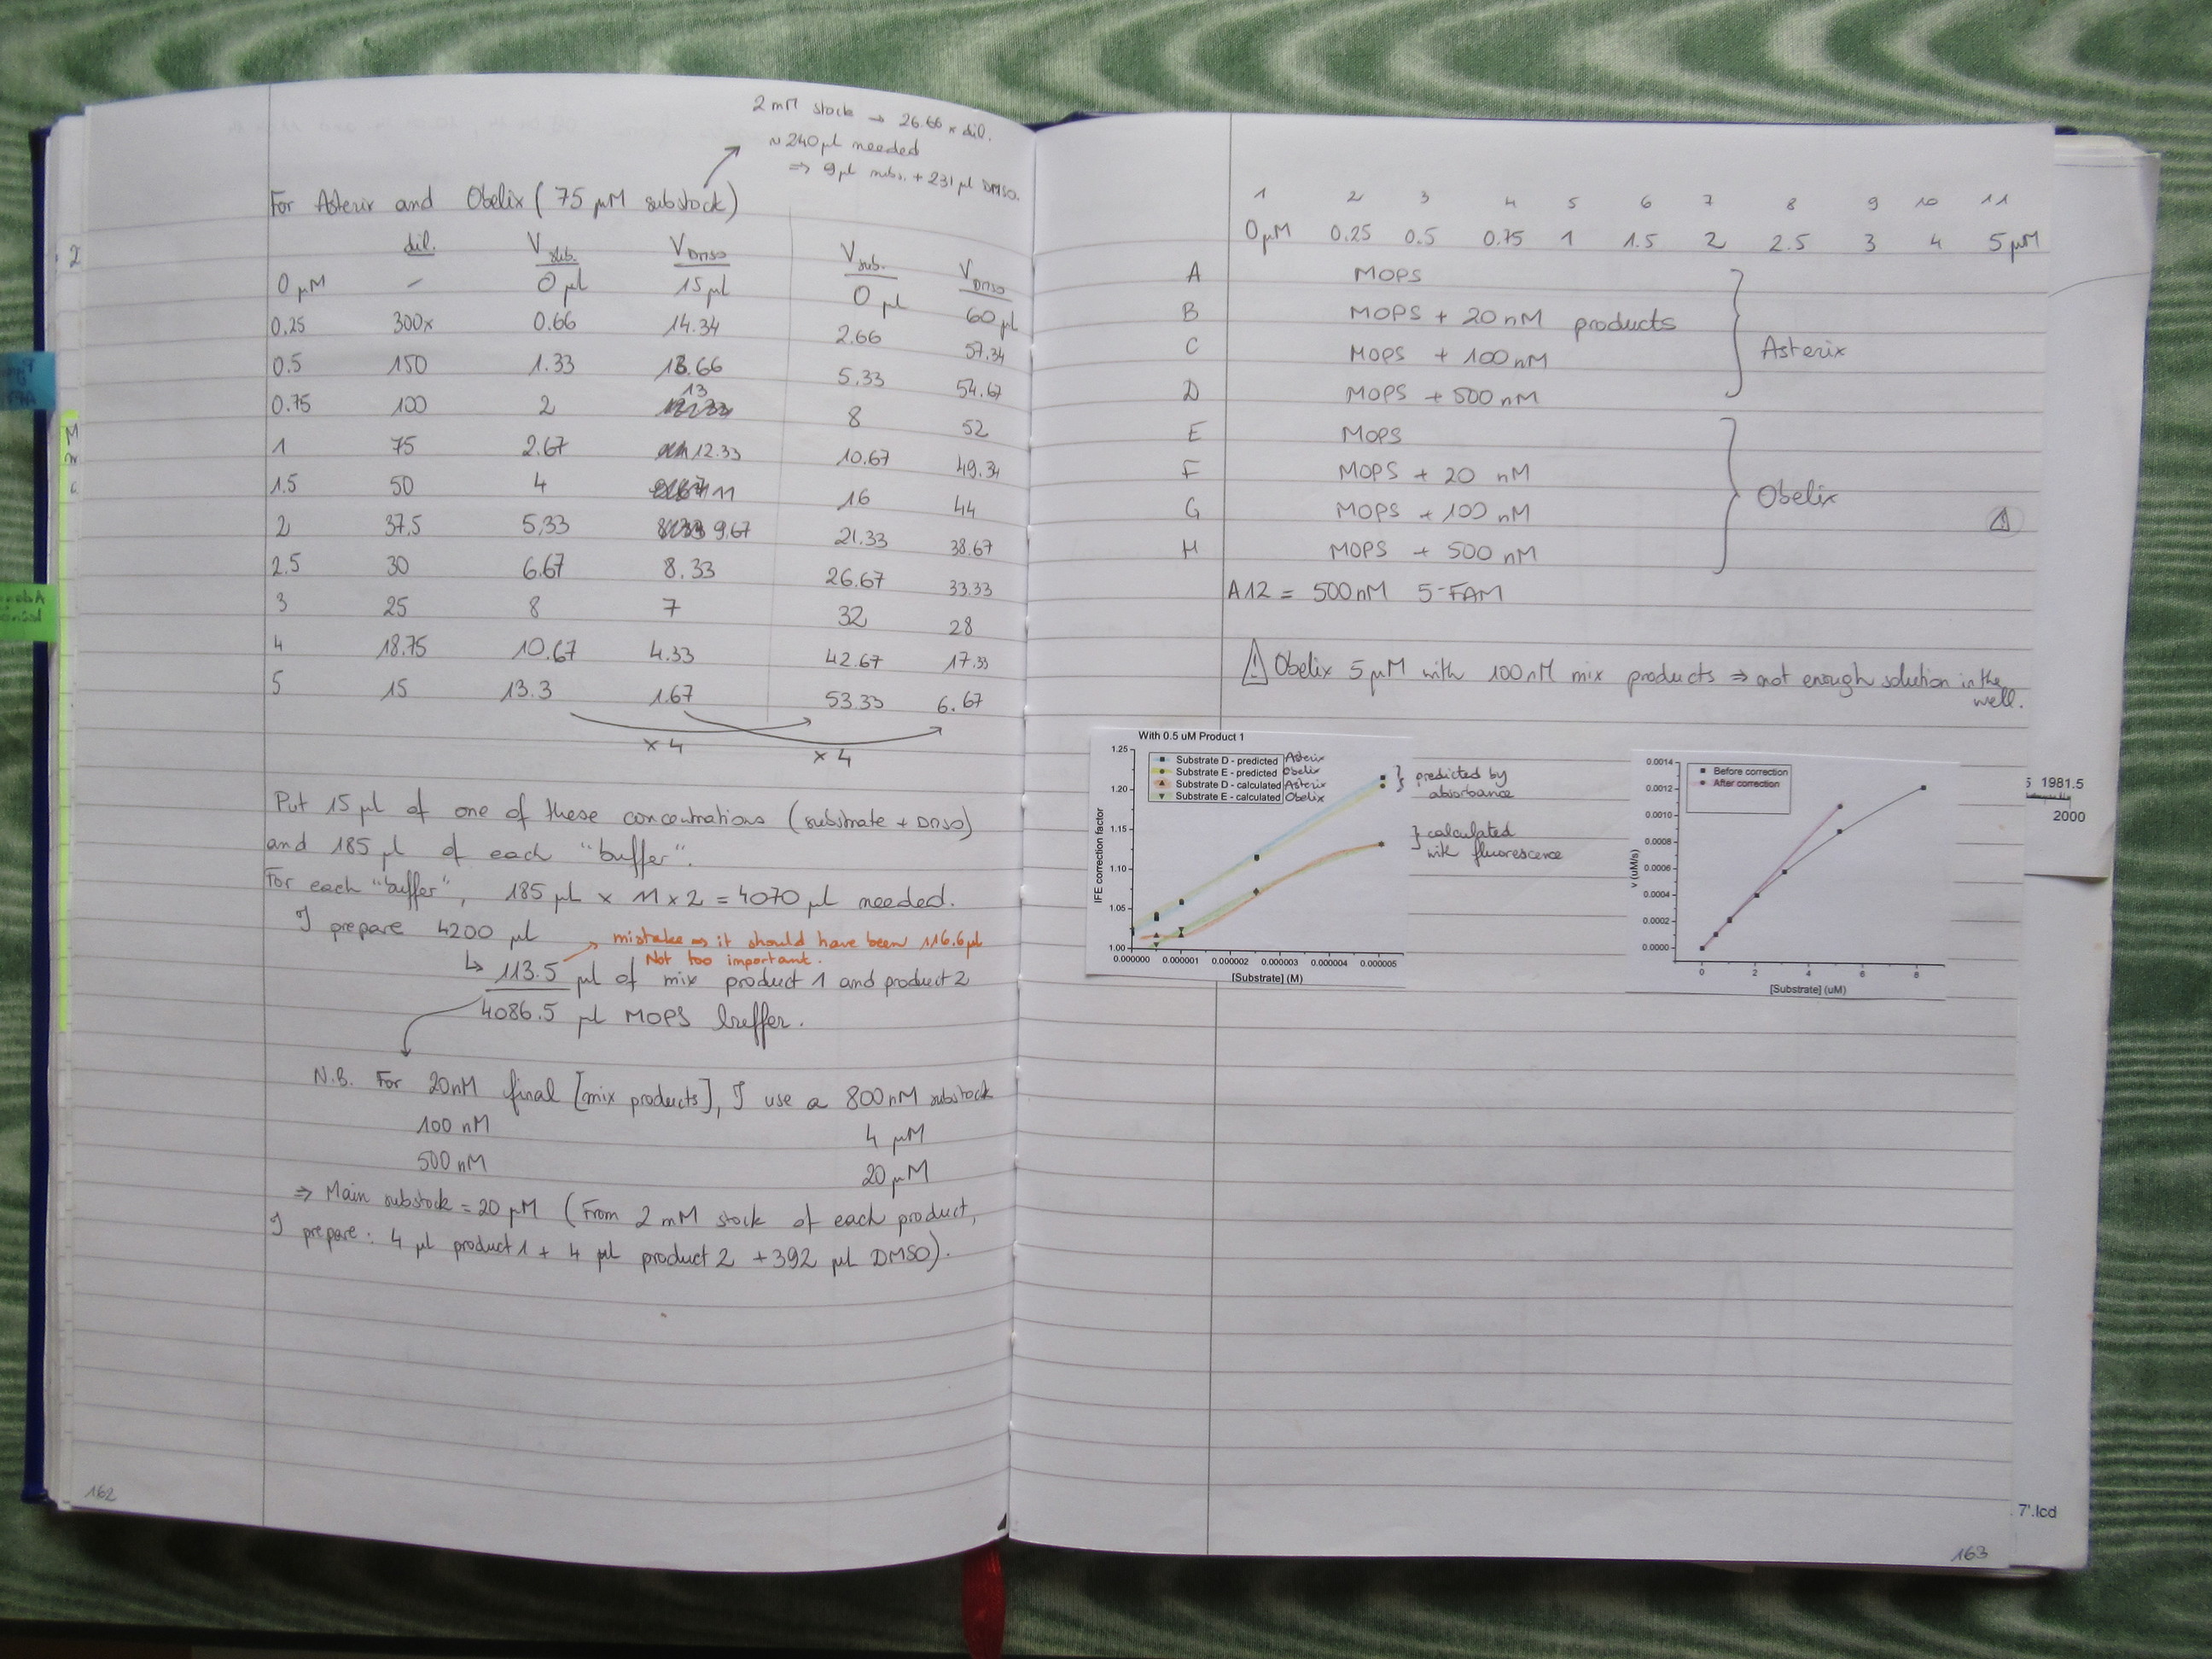 2 mM stock → 26.66 x dil.
~240 µl needed
⇒ 9 µl subs. + 231 µl DMSO.
For Asterix and Obelix (75 µM substock)
dil. V sub. V DMSO V sub. V DMSO
0 µM - 0 µl 15 µl 0 µl 60 µl
0.25 300x 0.66 14.34 2.66 57.34
0.5 150 1.33 13.66 5.33 54.67
0.75 100 2 13 8 52
1 75 2.67 12.33 10.67 49.34
1.5 50 4 11 16 44
2 37.5 5.33 9.67 21.33 38.67
2.5 30 6.67 8.33 26.67 33.33
3 25 8 7 32 28
4 18.75 10.67 4.33 42.67 17.33
5 15 13.3 1.67 53.33 6.67
x 4 x 4
Put 15 µl of one of these concentrations (substrate + DMSO)
and 185 µl of each "buffer".
For each "buffer", 185 µl x 11 x 2 = 4070 µl needed.
I prepare 4200 µl
→ mistake ⇒ it should have been 116.6 µl
Not too important.
↳ 113.5 µl of mix product 1 and product 2
4086.5 µl MOPS buffer.
N.B. For 20 nM final [mix products], I use a 800 nM substock
100 nM 4 µM
500 nM 20 µM
⇒ Main substock = 20 µM (From 2 mM stock of each product,
I prepare: 4 µl product 1 + 4 µl product 2 + 392 µl DMSO).
162
1 2 3 4 5 6 7 8 9 10 11
0 µM 0.25 0.5 0.75 1 1.5 2 2.5 3 4 5 µM
A MOPS
B MOPS + 20 nM products
C MOPS + 100 nM
Asterix
D MOPS + 500 nM
E MOPS
F MOPS + 20 nM
Obelix
G MOPS + 100 nM
H MOPS + 500 nM
A12 = 500 nM 5-FAM
⚠ Obelix 5 µM with 100 nM mix products ⇒ not enough solution in the
well.
With 0.5 uM Product 1
Substrate D - predicted Asterix
Substrate E - predicted Obelix
Substrate D - calculated Asterix
Substrate E - calculated Obelix
} predicted by
absorbance
} calculated
with fluorescence
IFE correction factor
1.25
1.20
1.15
1.10
1.05
1.00
0.000000 0.000001 0.000002 0.000003 0.000004 0.000005
[Substrate] (M)
Before correction
After correction
v (uM/s)
0.0014
0.0012
0.0010
0.0008
0.0006
0.0004
0.0002
0.0000
0 2 4 6 8
[Substrate] (uM)
1981.5
2000
7'.lcd
163
2